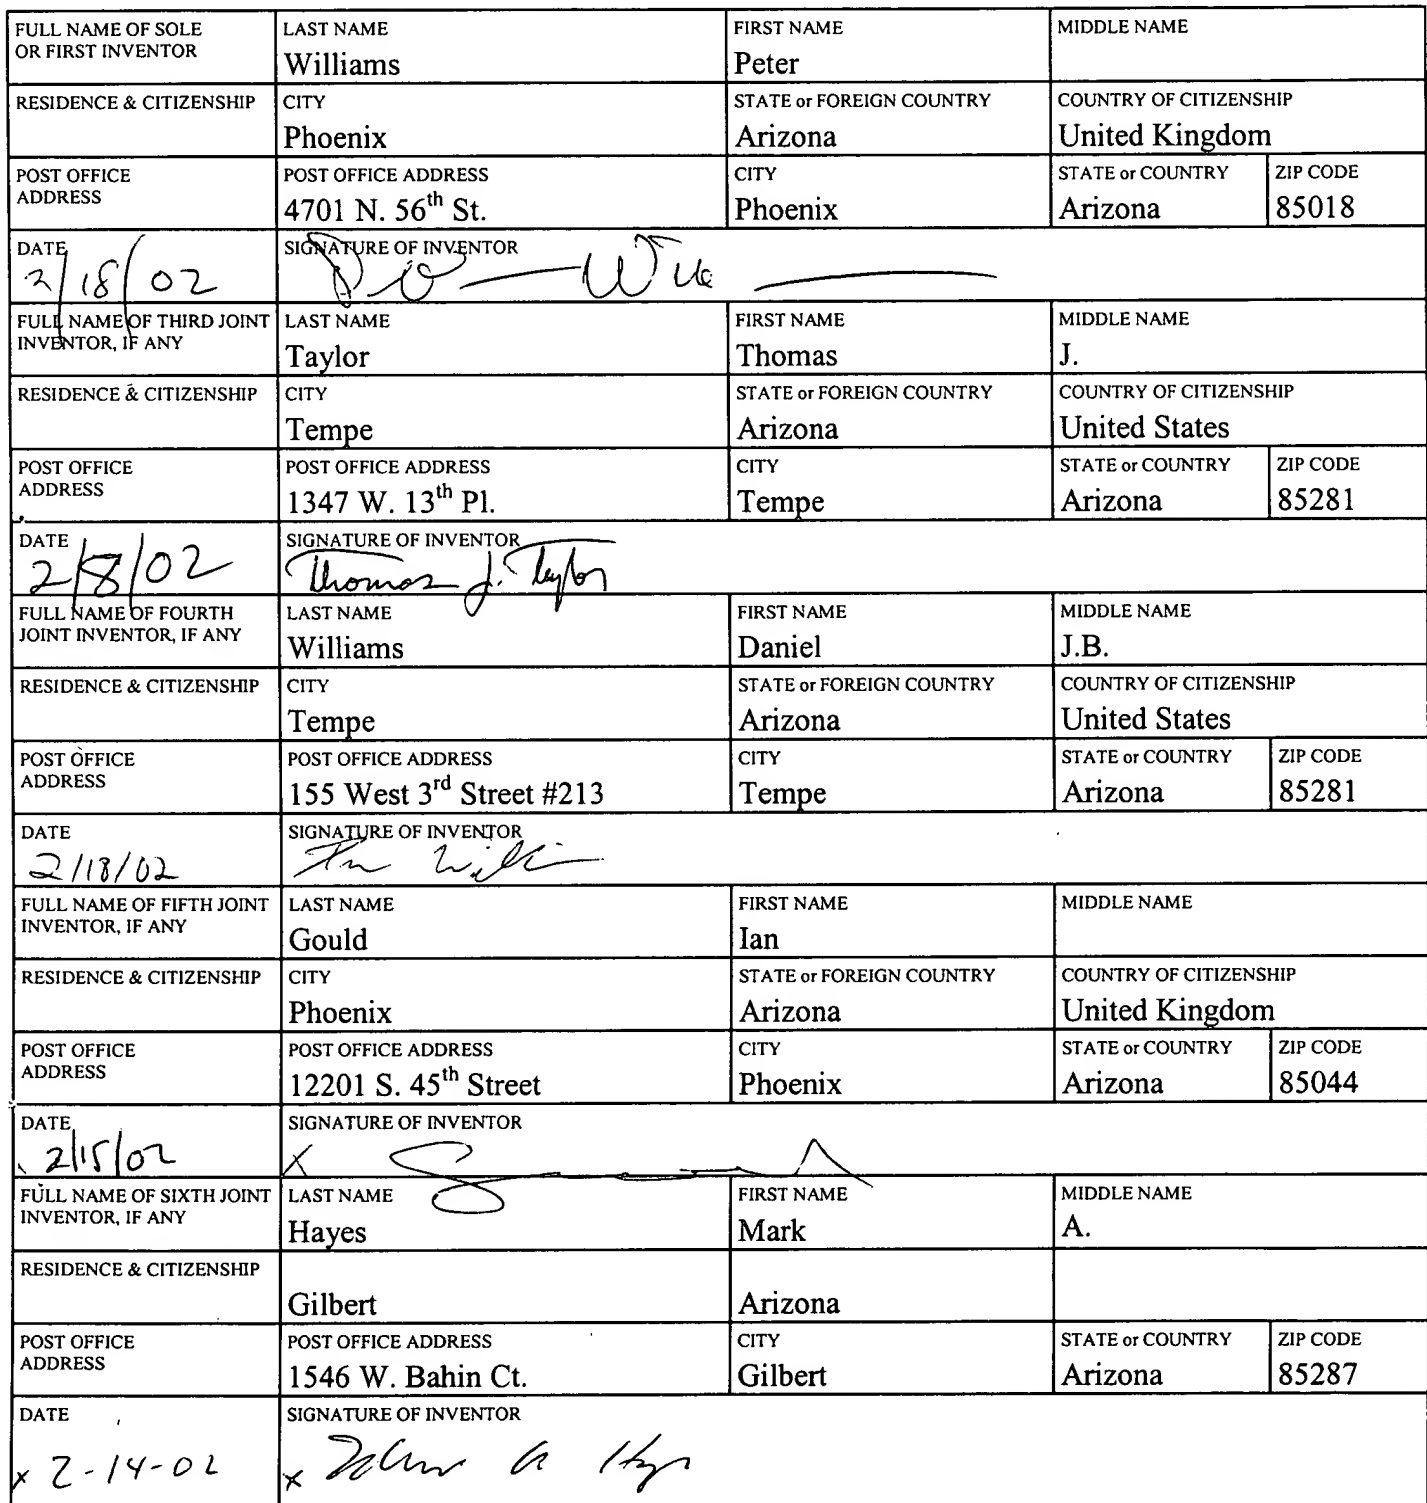 FULL NAME OF SOLE OR FIRST INVENTOR
LAST NAME Williams
FIRST NAME Peter
MIDDLE NAME
RESIDENCE & CITIZENSHIP
CITY Phoenix
STATE or FOREIGN COUNTRY Arizona
COUNTRY OF CITIZENSHIP United Kingdom
POST OFFICE ADDRESS
POST OFFICE ADDRESS 4701 N. 56th St.
CITY Phoenix
STATE or COUNTRY Arizona
ZIP CODE 85018
DATE 2/18/02
SIGNATURE OF INVENTOR
FULL NAME OF THIRD JOINT INVENTOR, IF ANY
LAST NAME Taylor
FIRST NAME Thomas
MIDDLE NAME J.
RESIDENCE & CITIZENSHIP
CITY Tempe
STATE or FOREIGN COUNTRY Arizona
COUNTRY OF CITIZENSHIP United States
POST OFFICE ADDRESS
POST OFFICE ADDRESS 1347 W. 13th Pl.
CITY Tempe
STATE or COUNTRY Arizona
ZIP CODE 85281
DATE 2/8/02
SIGNATURE OF INVENTOR Thomas J. Taylor
FULL NAME OF FOURTH JOINT INVENTOR, IF ANY
LAST NAME Williams
FIRST NAME Daniel
MIDDLE NAME J.B.
RESIDENCE & CITIZENSHIP
CITY Tempe
STATE or FOREIGN COUNTRY Arizona
COUNTRY OF CITIZENSHIP United States
POST OFFICE ADDRESS
POST OFFICE ADDRESS 155 West 3rd Street #213
CITY Tempe
STATE or COUNTRY Arizona
ZIP CODE 85281
DATE 2/18/02
SIGNATURE OF INVENTOR
FULL NAME OF FIFTH JOINT INVENTOR, IF ANY
LAST NAME Gould
FIRST NAME Ian
MIDDLE NAME
RESIDENCE & CITIZENSHIP
CITY Phoenix
STATE or FOREIGN COUNTRY Arizona
COUNTRY OF CITIZENSHIP United Kingdom
POST OFFICE ADDRESS
POST OFFICE ADDRESS 12201 S. 45th Street
CITY Phoenix
STATE or COUNTRY Arizona
ZIP CODE 85044
DATE 2/15/02
SIGNATURE OF INVENTOR x
FULL NAME OF SIXTH JOINT INVENTOR, IF ANY
LAST NAME Hayes
FIRST NAME Mark
MIDDLE NAME A.
RESIDENCE & CITIZENSHIP
Gilbert
Arizona
POST OFFICE ADDRESS
POST OFFICE ADDRESS 1546 W. Bahin Ct.
CITY Gilbert
STATE or COUNTRY Arizona
ZIP CODE 85287
DATE x 2-14-02
SIGNATURE OF INVENTOR x